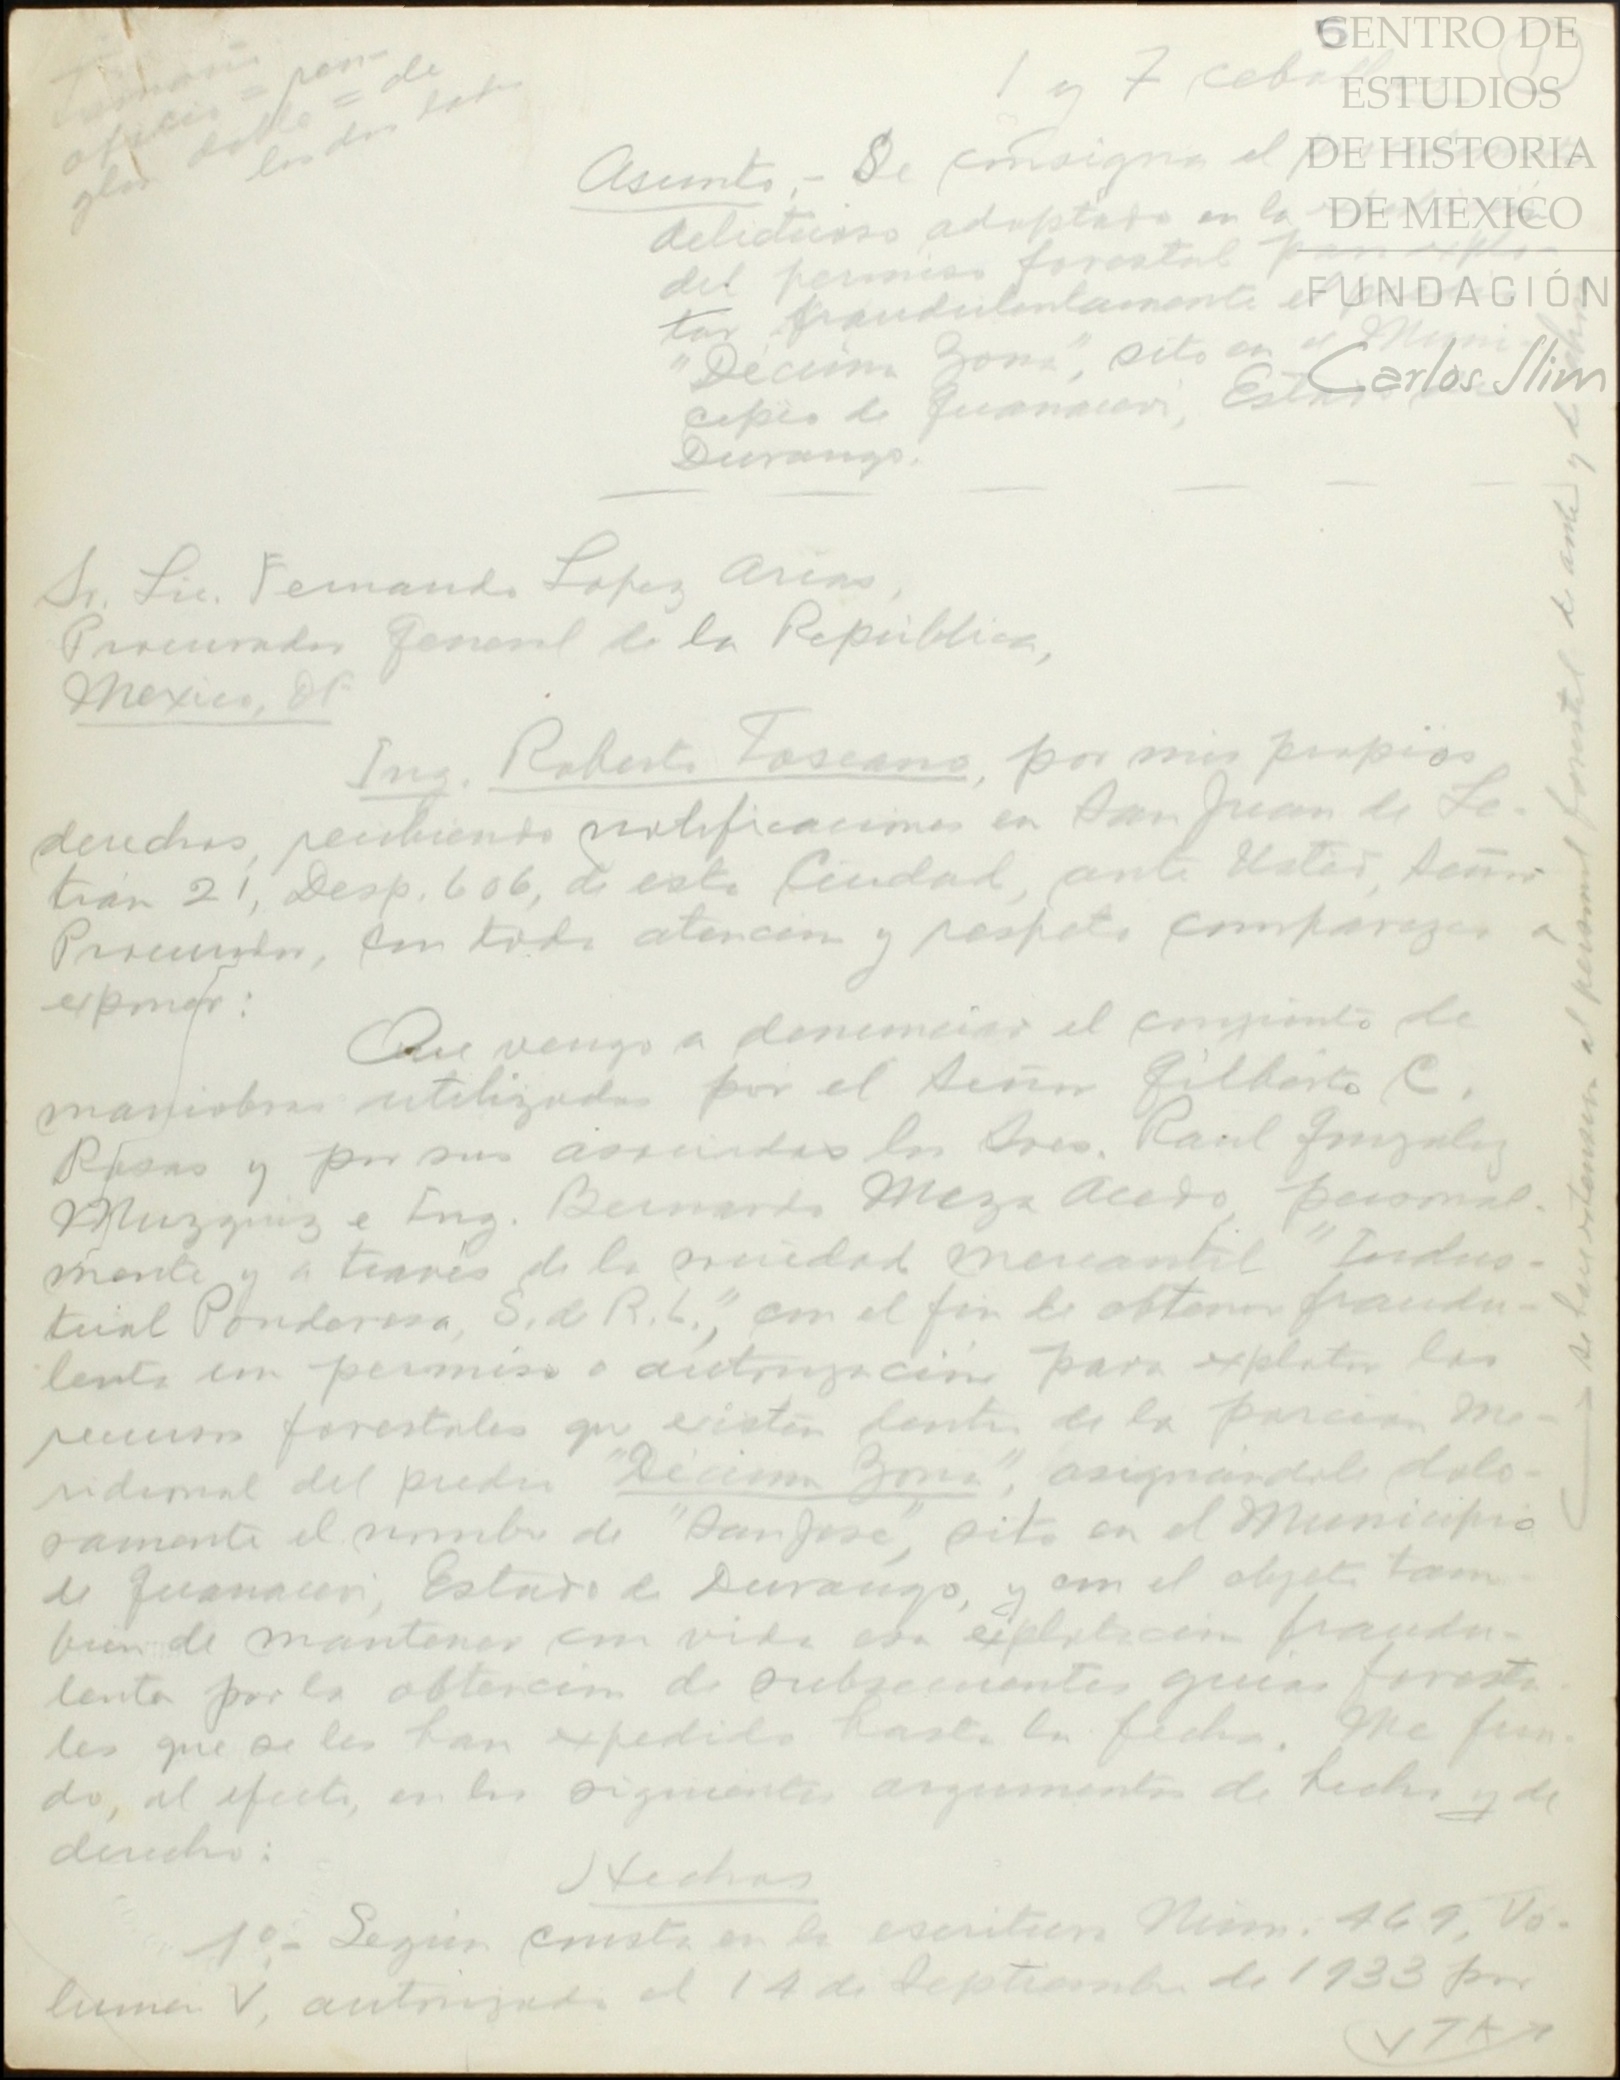 Tamaño
oficio = ren-
glón doble = de
los dos lados
1 y 7 
Asunto.- Se consigna el
delictuoso adoptado en la
del permiso forestal para explo-
tar fraudulentamente el
"Décima Zona", sito en el Muni-
cipio de Guanaceví, Estado de
Durango.
Sr. Lic. Fernando Lopez Arias,
Procurador General de la República,
Mexico, DF
Ing. Roberto Toscano, por mis propios
derechos, recibiendo notificaciones en San Juan de Le-
trán 21, Desp. 606, de esta Ciudad, ante Usted, Señor
Procurador, con toda atencion y respeto comparezco a
exponer:
Que vengo a denunciar el conjunto de
maniobras utilizadas por el Señor Gilberto C.
Rosas y por sus asociados los Sres. Raul Gonzalez
Muzquiz e Ing. Bernardo Meza Acedo, personal-
mente y a través de la sociedad mercantil "Indus-
trial Ponderosa, S. de R.L.", con el fin de obtener fraudu-
lenta un permiso o autorización para explotar los
recursos forestales que existen dentro de la porción me-
ridional del predio "Décima Zona", asignándole dolo-
samente el nombre de "San José", sito en el Municipio
de Guanaceví, Estado de Durango, y con el objeto tam-
bien de mantener con vida esa explotación fraudu-
lenta por la obtención de subsecuentes guías foresta-
les que se les han expedido hasta la fecha. Me fun-
do, al efecto, en los siguientes argumentos de hecho y de
derecho:
Hechos
1º.- Según consta en la escritura Núm. 469, Vo-
lumen V, autorizada el 14 de Septiembre de 1933 por
VTA
se hace extensiva al personal forestal de ante y de
CENTRO DE
ESTUDIOS
DE HISTORIA
DE MEXICO
FUNDACIÓN
Carlos Slim